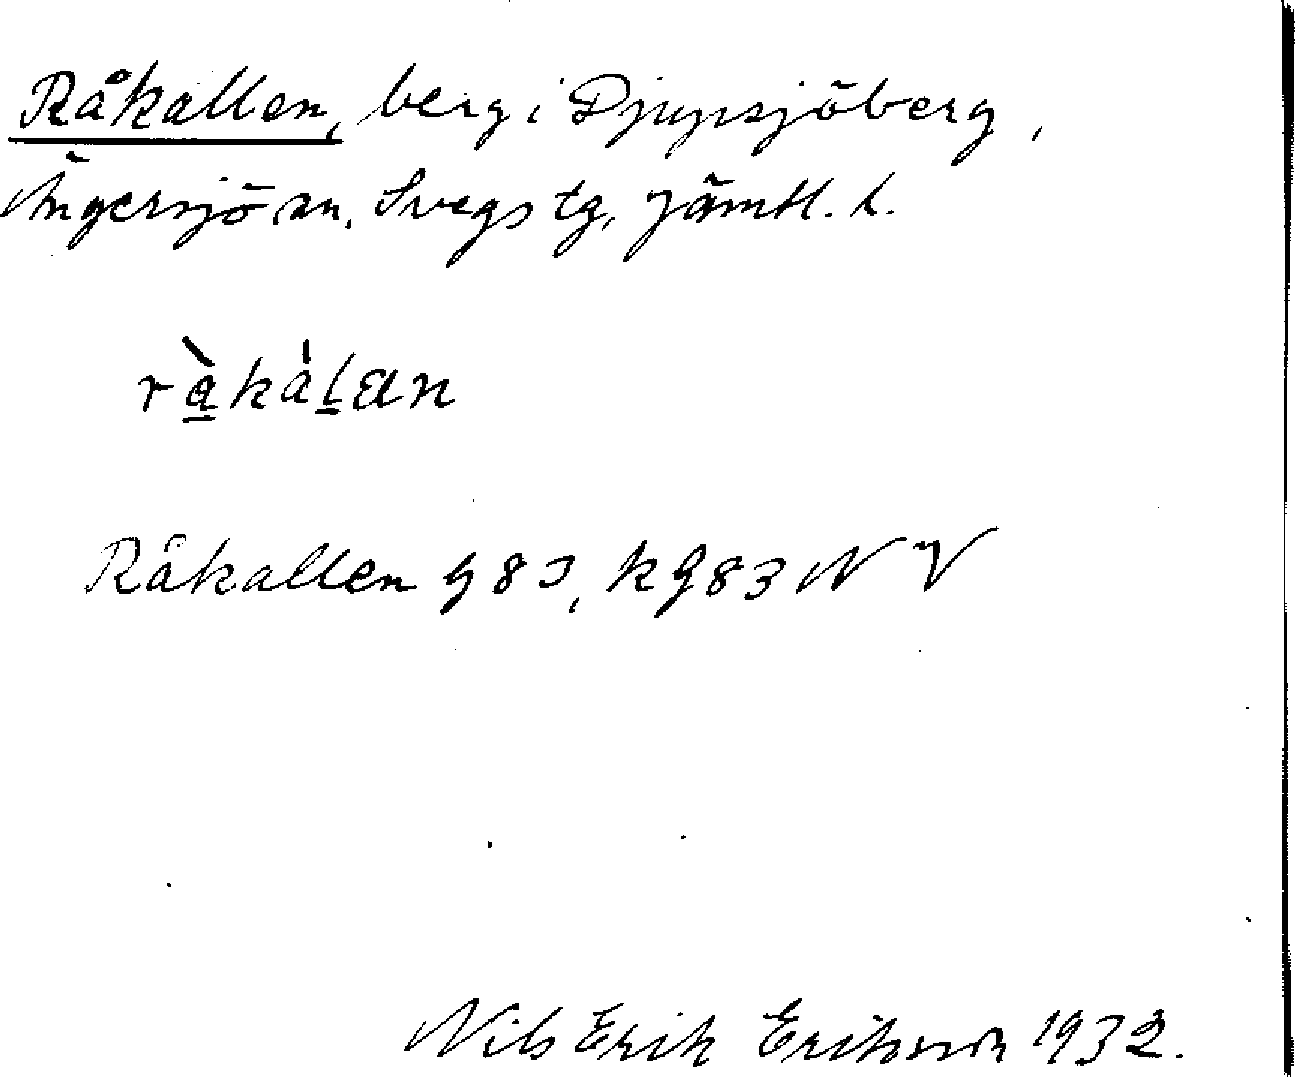 Råkallen, berg i Djupsjöberg,
Ängersjö an. Svegs tg, Jämtl. l.
rå̀kàḷan
Råkallen g 83, kg 83 NV
Nils Erik Eriksson 1932.